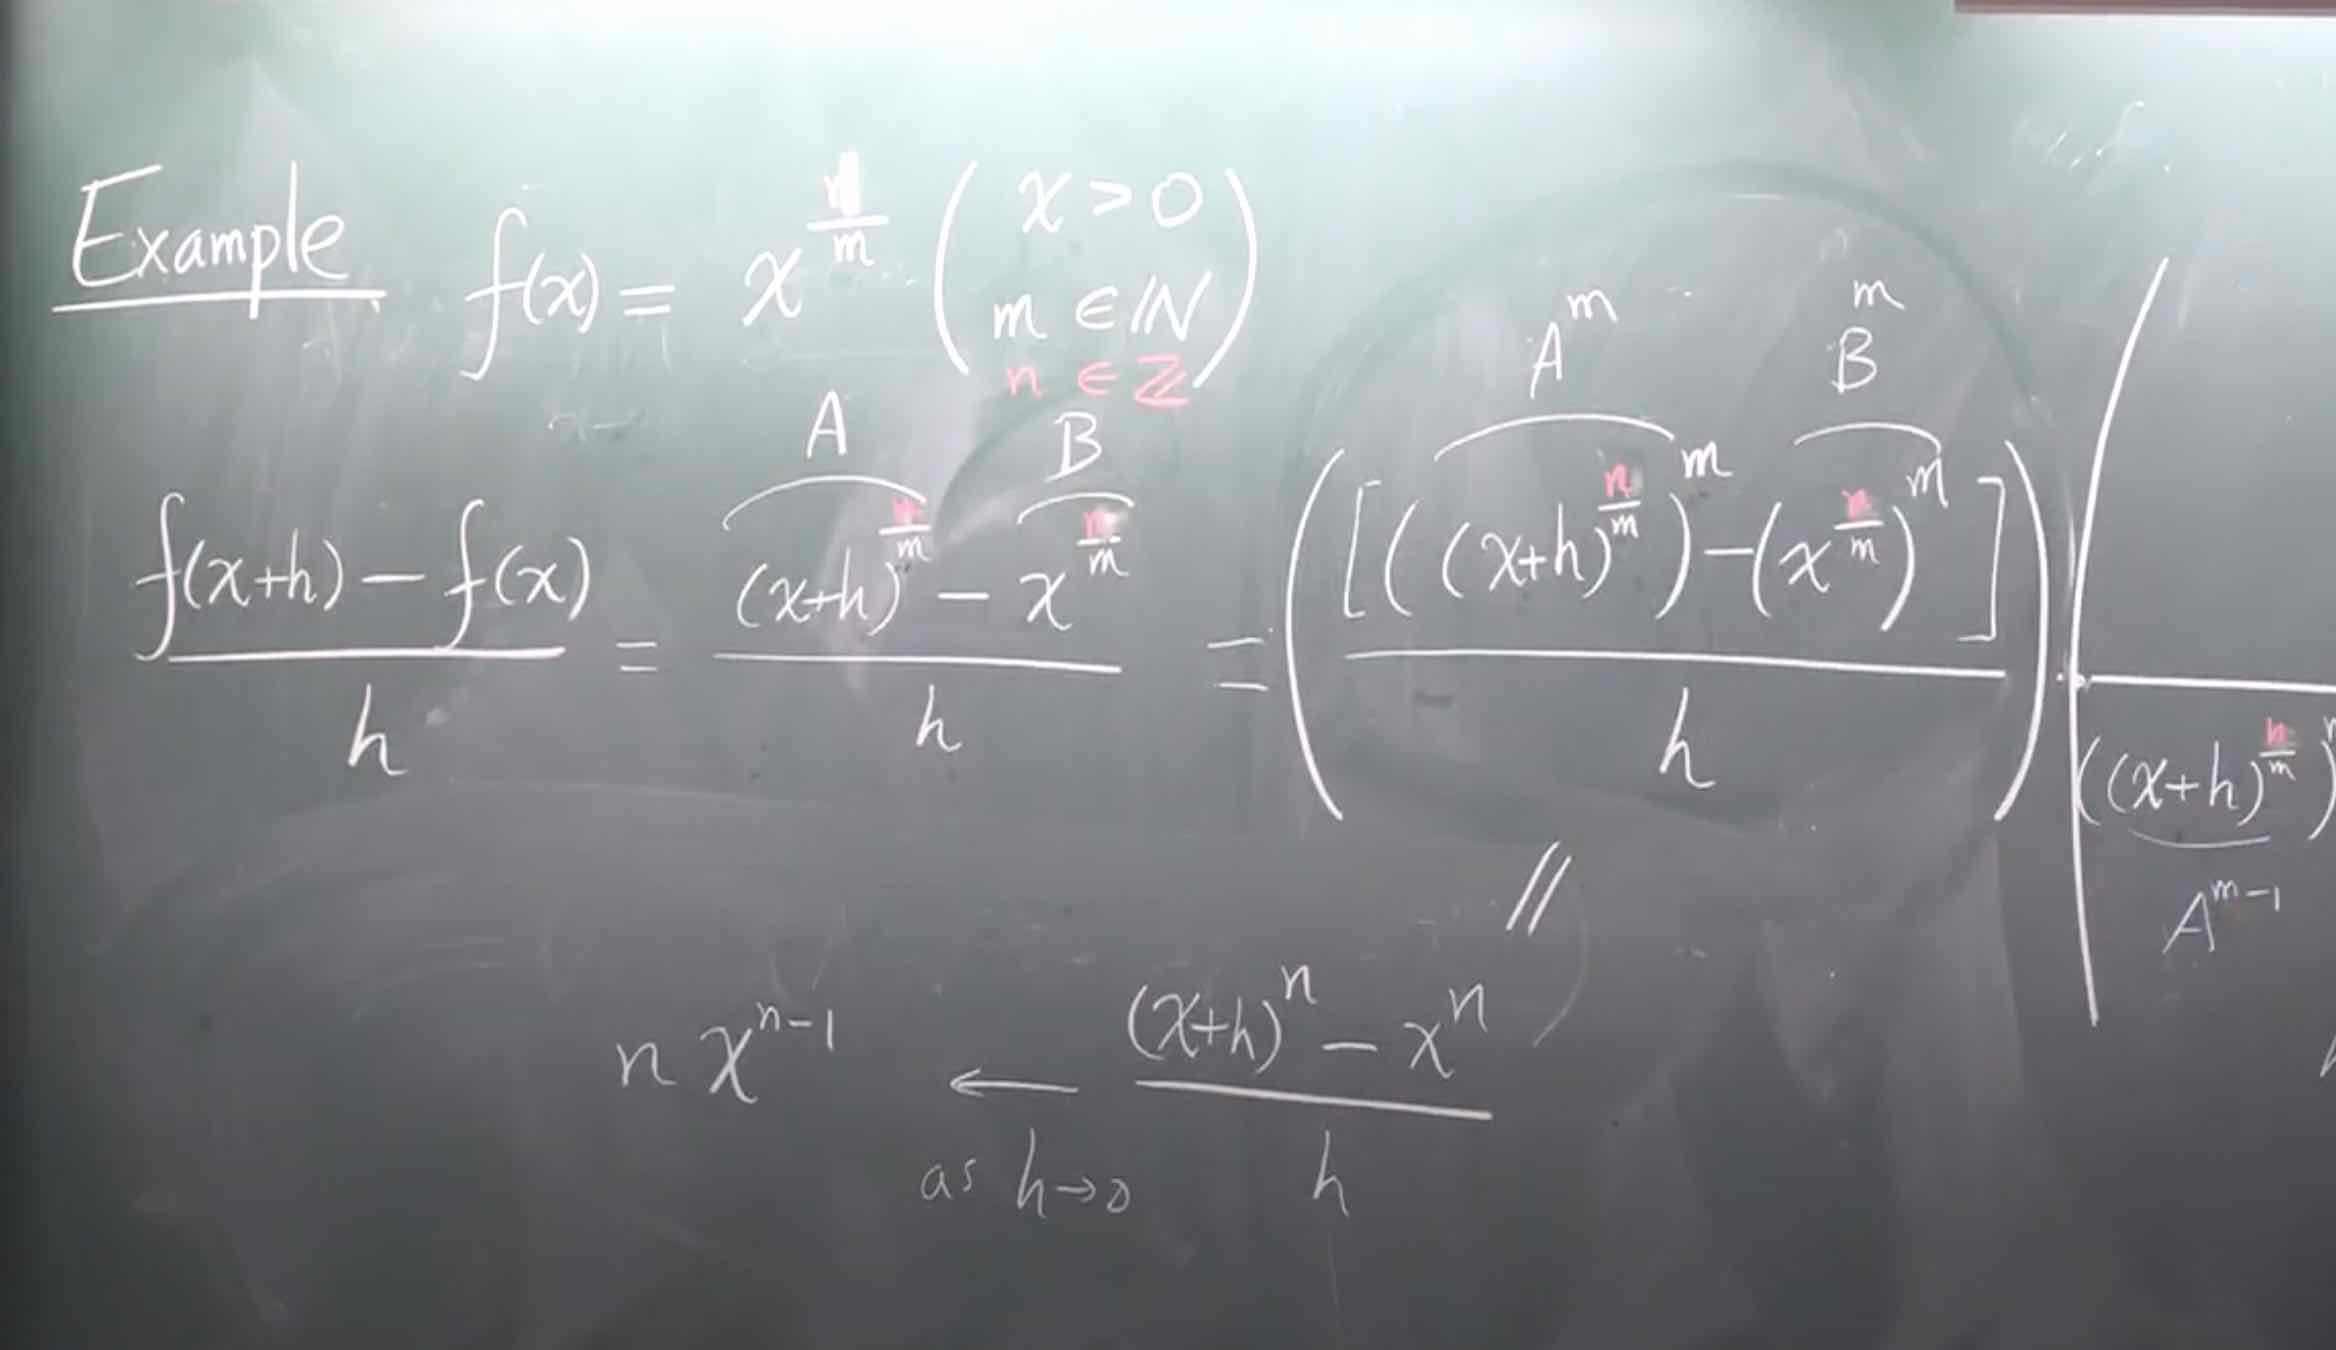 Example f(x) = x^{n/m} ( x > 0
m ∈ ℕ
n ∈ ℤ )
A B A^m B^m
\frac{f(x+h) - f(x)}{h} = \frac{(x+h)^{n/m} - x^{n/m}}{h} = ( \frac{[((x+h)^{n/m})^m - (x^{n/m})^m]}{h} ) ·
((x+h)^{n/m})
A^{m-1}
//
n x^{n-1} ← \frac{(x+h)^n - x^n}{h}
as h→0